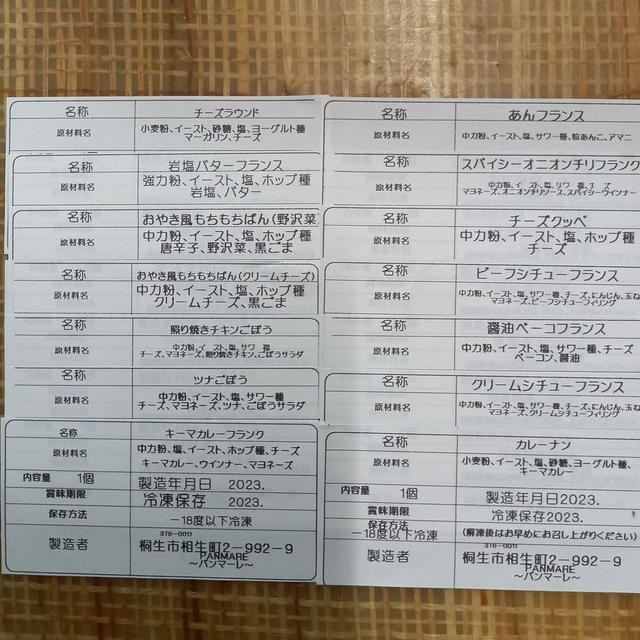 名称 チーズラウンド
原材料名 小麦粉、イースト、砂糖、塩、ヨーグルト種
マーガリン、チーズ
名称 岩塩バターフランス
原材料名 強力粉、イースト、塩、ホップ種
岩塩、バター
名称 おやき風もちもちぱん(野沢菜
原材料名 中力粉、イースト、塩、ホップ種
唐辛子、野沢菜、黒ごま
名称 おやき風もちもちぱん(クリームチーズ)
原材料名 中力粉、イースト、塩、ホップ種
クリームチーズ、黒ごま
名称 照り焼きチキンごぼう
原材料名 中力粉、イースト、塩、サワー種
チーズ、マヨネーズ、照り焼きチキン、ごぼうサラダ
名称 ツナごぼう
原材料名 中力粉、イースト、塩、サワー種
チーズ、マヨネーズ、ツナ、ごぼうサラダ
名称 キーマカレーフランク
原材料名 中力粉、イースト、塩、ホップ種、チーズ
キーマカレー、ウインナー、マヨネーズ
内容量 1個 製造年月日 2023.
賞味期限 冷凍保存 2023.
保存方法 −18度以下冷凍
376-0011
製造者 桐生市相生町2−992−9
PANMARE
〜パンマーレ〜
名称 あんフランス
原材料名 中力粉、イースト、塩、サワー種、粒あんこ、アマニ
名称 スパイシーオニオンチリフランク
原材料名 中力粉、イースト、塩、サワー種、チーズ
マヨネーズ、オニオンチリソース、スパイシーウインナー
名称 チーズクッペ
原材料名 中力粉、イースト、塩、ホップ種
チーズ
名称 ビーフシチューフランス
原材料名 中力粉、イースト、塩、サワー種、チーズ、にんじん、玉ね
マヨネーズ、ビーフシチューフィリング
名称 醤油ベーコフランス
原材料名 中力粉、イースト、塩、サワー種、チーズ
ベーコン、醤油
名称 クリームシチューフランス
原材料名 中力粉、イースト、塩、サワー種、チーズ、にんじん、玉ね
マヨネーズ、クリームシチューフィリング
名称 カレーナン
原材料名 小麦粉、イースト、塩、砂糖、ヨーグルト種、
キーマカレー
内容量 1個 製造年月日2023.
賞味期限 冷凍保存2023.
保存方法
−18度以下冷凍 (解凍後はお早めにお召し上がりください)
376-0011
製造者 桐生市相生町2−992−9
PANMARE
〜パンマーレ〜